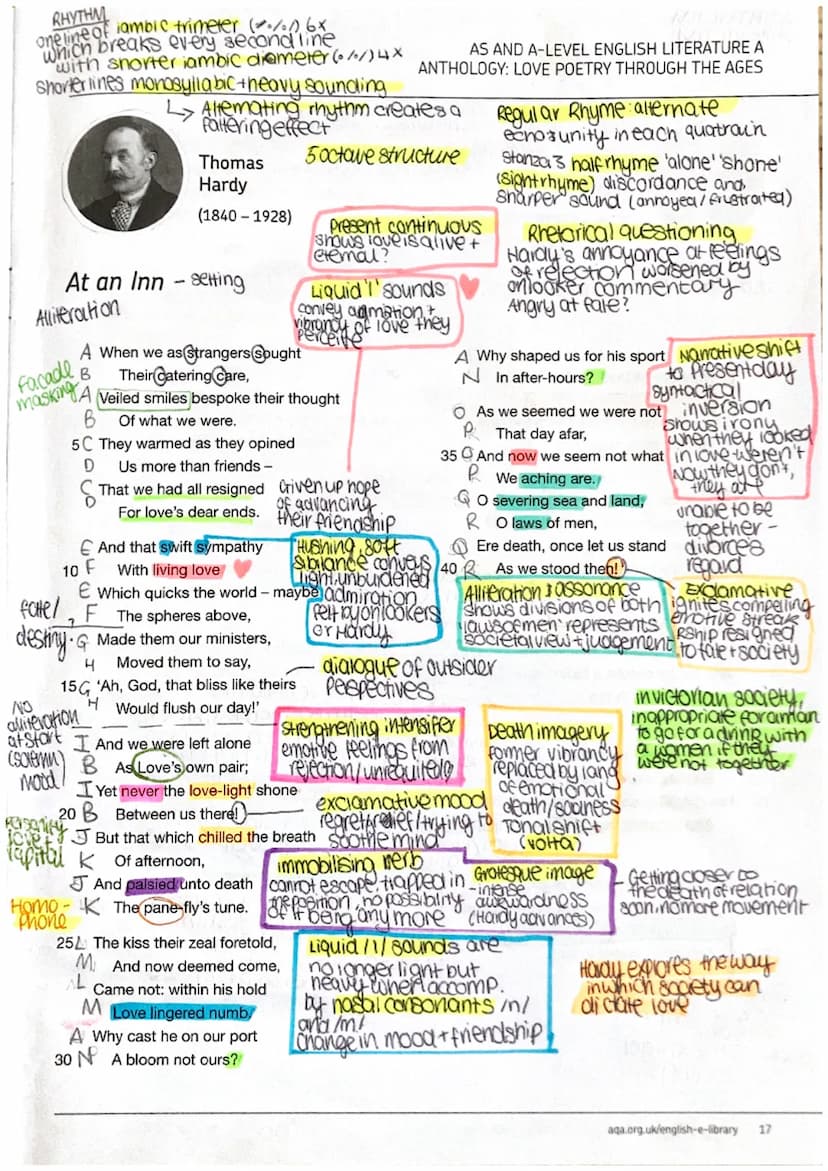 RHYTHM
one line of iambic trimeter (˘/˘/˘/) 6x
which breaks every second line
with shorter iambic diameter (˘/˘/) 4x
shorter lines monosyllabic + heavy sounding
↳ Alternating rhythm creates a
faltering effect
AS AND A-LEVEL ENGLISH LITERATURE A
ANTHOLOGY: LOVE POETRY THROUGH THE AGES
Thomas
Hardy
(1840 – 1928)
5 octave structure
Regular Rhyme: alternate
echos unity in each quatrain
Stanza 3 half rhyme 'alone' 'shone'
(sight rhyme) discordance and
sharper sound (annoyed / frustrated)
Present continuous
shows love is alive +
eternal?
Rhetorical questioning
Hardy's annoyance at feelings
of rejection worsened by
onlooker commentary
Angry at fate?
At an Inn – setting
Alliteration
Liquid 'l' sounds
convey admation +
vibrancy of love they
perceive
facade
masking
A When we as strangers sought
B Their catering care,
A Veiled smiles bespoke their thought
B Of what we were.
5 C They warmed as they opined
D Us more than friends –
C That we had all resigned
D For love's dear ends.
Given up hope
of advancing
their friendship
E And that swift sympathy
10 F With living love
E Which quicks the world – maybe
F The spheres above,
G Made them our ministers,
H Moved them to say,
15 G 'Ah, God, that bliss like theirs
H Would flush our day!'
fate/
destiny.
Hushing, soft
sibilance conveys
light, unburdened
admiration
felt by onlookers
or Hardy
dialogue of outsider
perspectives
No
alliteration
at start
(solemn)
mood
I And we were left alone
B As Love's own pair;
I Yet never the love-light shone
20 B Between us there!
J But that which chilled the breath
K Of afternoon,
J And palsied unto death
K The pane-fly's tune.
personify
love +
capital
Homo-
phone
strengthening intensifer
emotive feelings from
rejection/unrequited
exclamative mood
regret/relief/trying to
soothe mind
Death imagery
former vibrancy
replaced by lang
of emotional
death/sadness
Tonal shift
(volta)
immobilising verb
cannot escape, trapped in
the position, no possibility
of it being any more
Grotesque image
- intense
awkwardness
(Hardy advances)
Getting closer to
the death of relation
soon, no more movement
25 L The kiss their zeal foretold,
M And now deemed come,
L Came not: within his hold
M Love lingered numb.
A Why cast he on our port
30 N A bloom not ours?
Liquid /l/ sounds are
no longer light but
heavy when accomp.
by nasal consonants /n/
and /m/
change in mood + friendship
Hardy explores the way
in which society can
dictate love
A Why shaped us for his sport
N In after-hours?
O As we seemed we were not
P That day afar,
35 O And now we seem not what
P We aching are.
Q O severing sea and land,
R O laws of men,
Q Ere death, once let us stand
40 R As we stood then!
Narrative shift
to present day
syntactical
inversion
shows irony
when they looked
in love - weren't
Now they don't,
they are
unable to be
together –
divorces
regard
Alliteration & assonance
shows divisions of both
'laws of men' represents
societal view + judgement
Exclamative
ignites compelling
emotive streak
Rship resigned
to fate + society
in victorian society,
inappropriate for a man
to go for a drink with
a women if they
were not together
aqa.org.uk/english-e-library 17